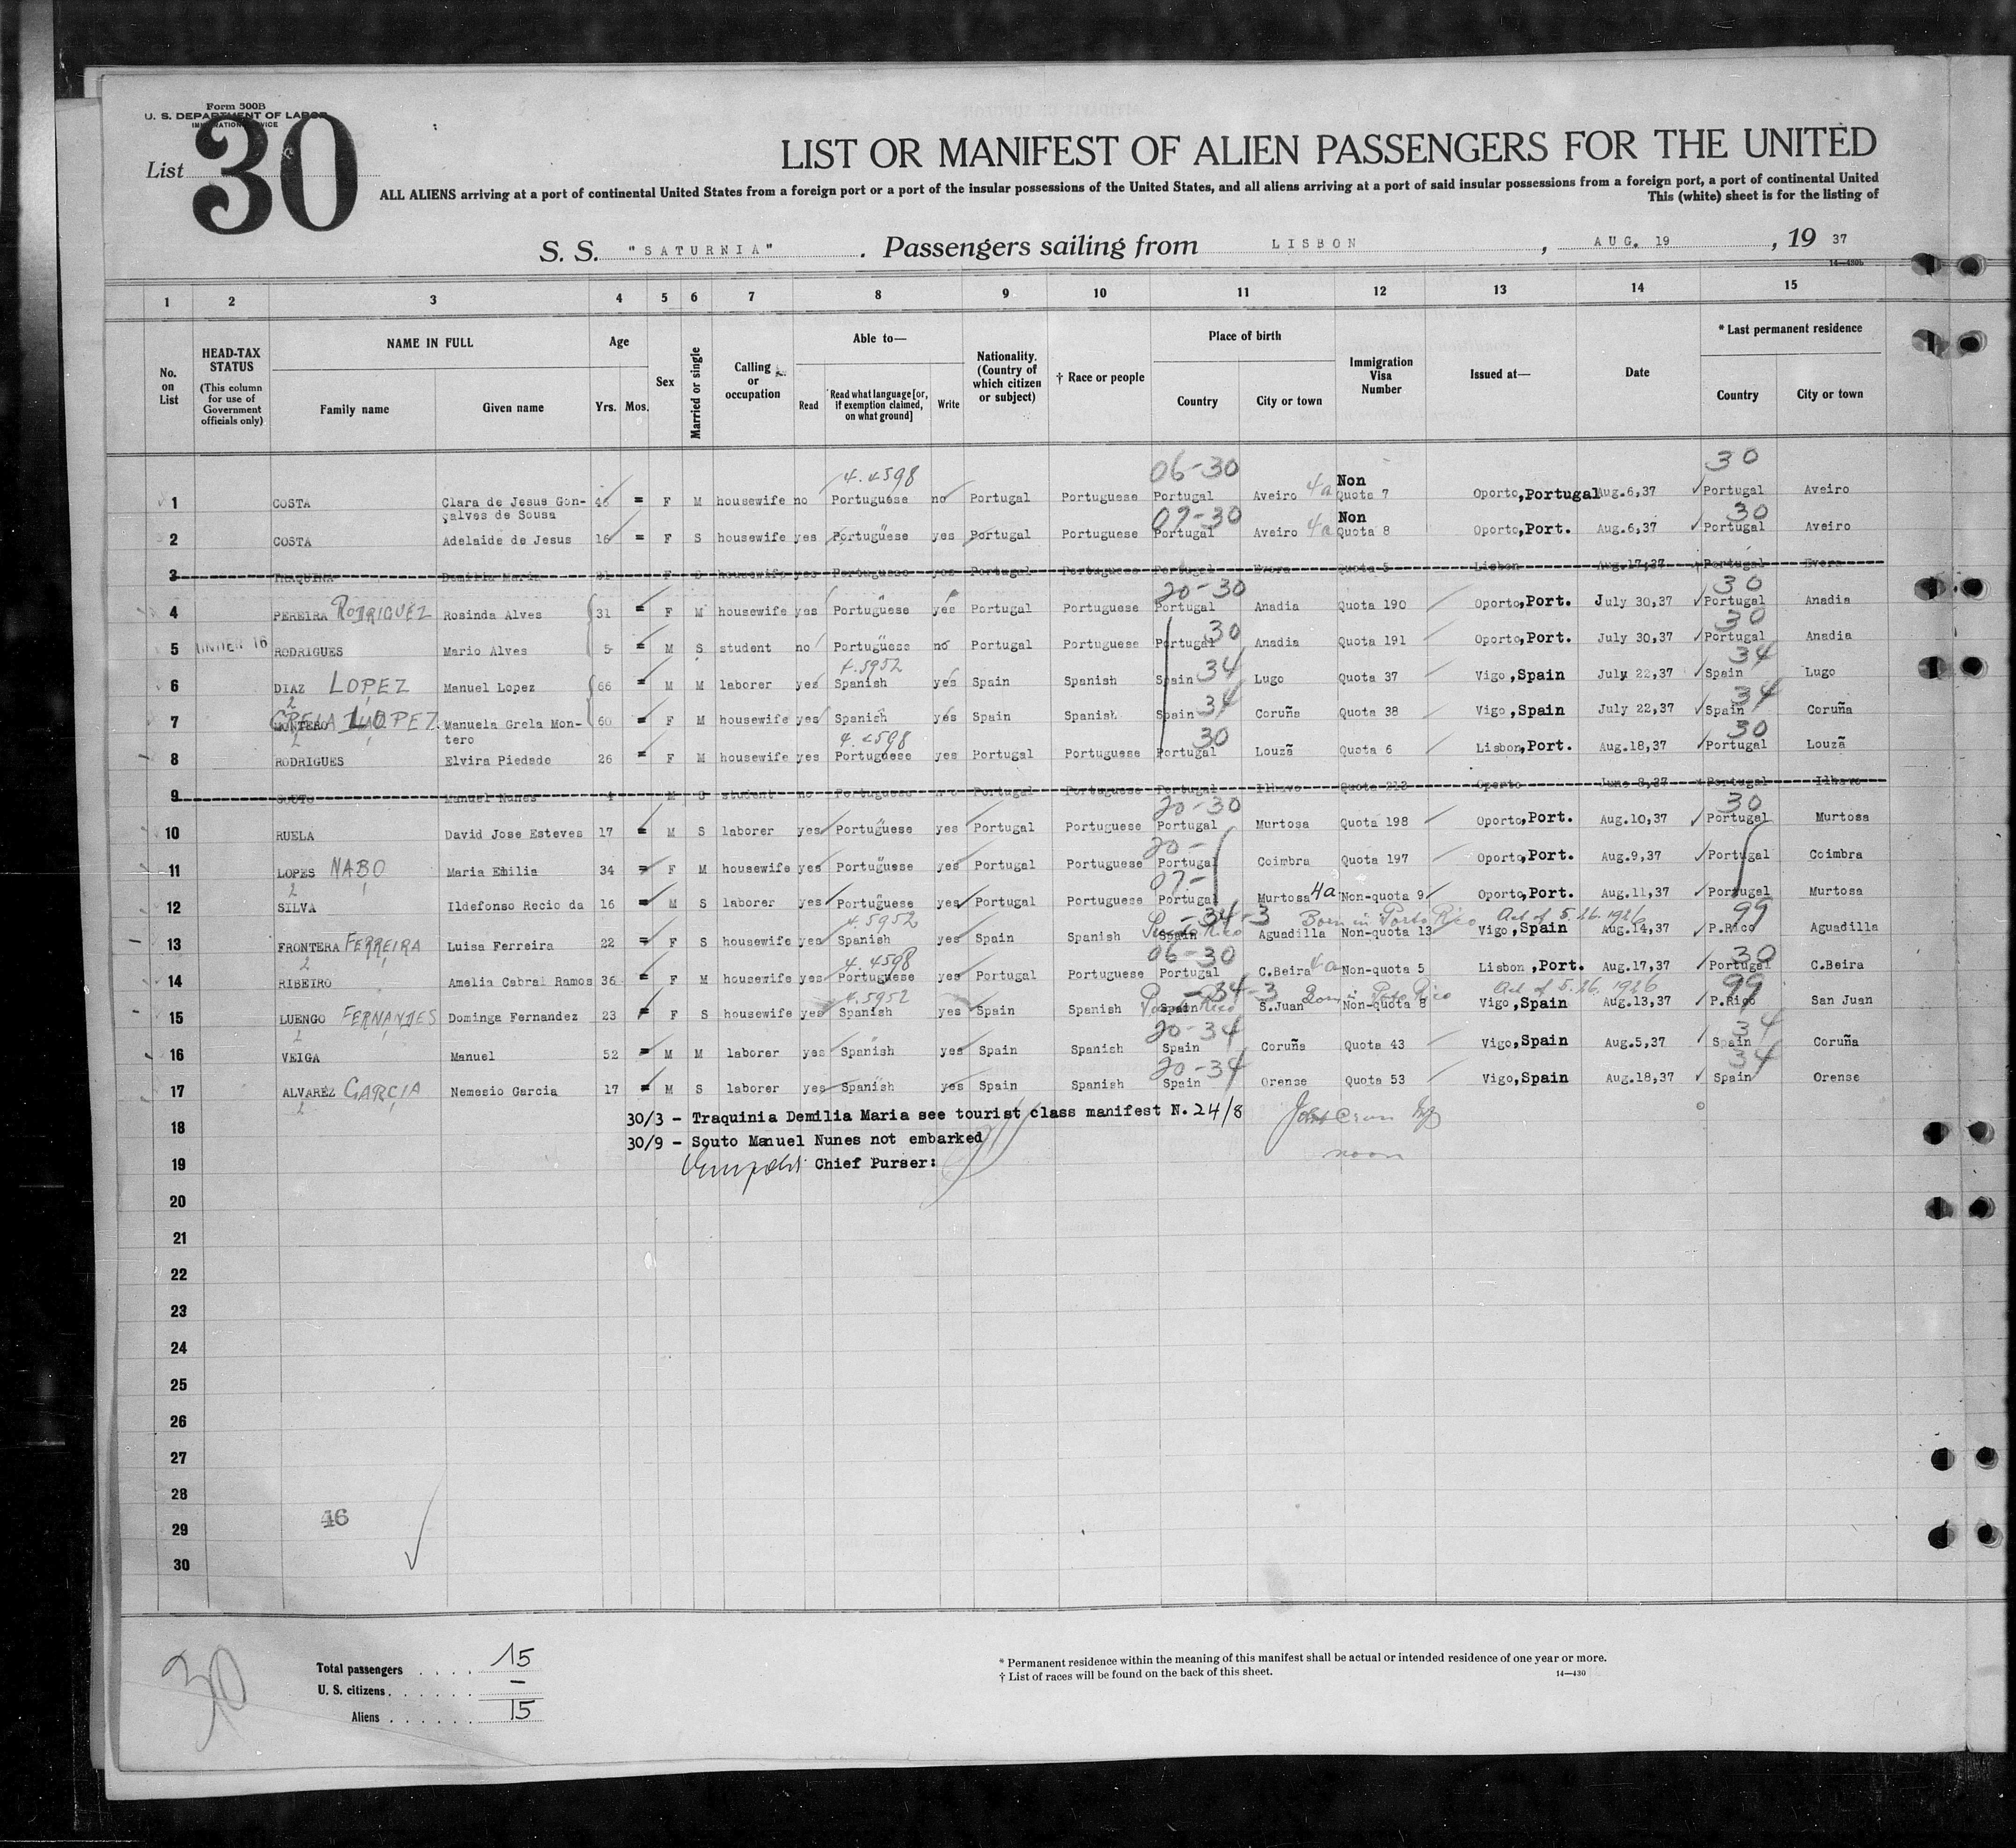 Form 500B
U. S. DEPARTMENT OF LABOR
IMMIGRATION SERVICE
List 30
LIST OR MANIFEST OF ALIEN PASSENGERS FOR THE UNITED
ALL ALIENS arriving at a port of continental United States from a foreign port or a port of the insular possessions of the United States, and all aliens arriving at a port of said insular possessions from a foreign port, a port of continental United
This (white) sheet is for the listing of
S. S. "SATURNIA". Passengers sailing from LISBON, AUG. 19, 19 37
14—430b
1 2 3 4 5 6 7 8 9 10 11 12 13 14 15
No. on List
HEAD-TAX STATUS (This column for use of Government officials only)
NAME IN FULL Family name Given name
Age Yrs. Mos.
Sex
Married or single
Calling or occupation
Able to— Read Read what language [or, if exemption claimed, on what ground] Write
Nationality. (Country of which citizen or subject)
† Race or people
Place of birth Country City or town
Immigration Visa Number
Issued at—
Date
* Last permanent residence Country City or town
4.4598 06-30 30
1 COSTA Clara de Jesus Gonçalves de Sousa 46 F M housewife no Portuguese no Portugal Portuguese Portugal Aveiro 4a Non Quota 7 Oporto, Portugal Aug.6,37 Portugal Aveiro
07-30 30
2 COSTA Adelaide de Jesus 16 F S housewife yes Portuguese yes Portugal Portuguese Portugal Aveiro 4a Non Quota 8 Oporto, Port. Aug.6,37 Portugal Aveiro
3 TRAQUINA Demilia Maria 21 F S housewife yes Portuguese yes Portugal Portuguese Portugal Evora Quota 5 Lisbon Aug.17,37 Portugal Evora
20-30 30
4 PEREIRA RODRIGUEZ Rosinda Alves 31 F M housewife yes Portuguese yes Portugal Portuguese Portugal Anadia Quota 190 Oporto, Port. July 30,37 Portugal Anadia
30 30
5 UNDER 16 RODRIGUES Mario Alves 5 M S student no Portuguese no Portugal Portuguese Portugal Anadia Quota 191 Oporto, Port. July 30,37 Portugal Anadia
4.5952 34 34
6 DIAZ LOPEZ Manuel Lopez 66 M M laborer yes Spanish yes Spain Spanish Spain Lugo Quota 37 Vigo, Spain July 22,37 Spain Lugo
34 34
7 MONTERO GRELA LOPEZ Manuela Grela Montero 60 F M housewife yes Spanish yes Spain Spanish Spain Coruña Quota 38 Vigo, Spain July 22,37 Spain Coruña
4.4598 30 30
8 RODRIGUES Elvira Piedade 26 F M housewife yes Portuguese yes Portugal Portuguese Portugal Louzã Quota 6 Lisbon, Port. Aug.18,37 Portugal Louzã
9 SOUTO Manuel Nunes 4 M S student no Portuguese no Portugal Portuguese Portugal Ilhavo Quota 213 Oporto June 8,37 Portugal Ilhavo
20-30 30
10 RUELA David Jose Esteves 17 M S laborer yes Portuguese yes Portugal Portuguese Portugal Murtosa Quota 198 Oporto, Port. Aug.10,37 Portugal Murtosa
20-
11 LOPES NABO Maria Emilia 34 F M housewife yes Portuguese yes Portugal Portuguese Portugal Coimbra Quota 197 Oporto, Port. Aug.9,37 Portugal Coimbra
07-
12 SILVA Ildefonso Recio da 16 M S laborer yes Portuguese yes Portugal Portuguese Portugal Murtosa 4a Non-quota 9 Oporto, Port. Aug.11,37 Portugal Murtosa
4.5952 -34-3 Born in Porto Rico Act of 5.26.1926 99
13 FRONTERA FERREIRA Luisa Ferreira 22 F S housewife yes Spanish yes Spain Spanish Spain Puerto Rico Aguadilla Non-quota 13 Vigo, Spain Aug.14,37 P.Rico Aguadilla
4.4598 06-30 30
14 RIBEIRO Amelia Cabral Ramos 36 F M housewife yes Portuguese yes Portugal Portuguese Portugal C.Beira 4a Non-quota 5 Lisbon, Port. Aug.17,37 Portugal C.Beira
4.5952 -34-3 Born in Porto Rico Act of 5.26.1926 99
15 LUENGO FERNANDES Dominga Fernandez 23 F S housewife yes Spanish yes Spain Spanish Spain Porto Rico S.Juan Non-quota 8 Vigo, Spain Aug.13,37 P.Rico San Juan
20-34 34
16 VEIGA Manuel 52 M M laborer yes Spanish yes Spain Spanish Spain Coruña Quota 43 Vigo, Spain Aug.5,37 Spain Coruña
20-34 34
17 ALVAREZ GARCIA Nemesio Garcia 17 M S laborer yes Spanish yes Spain Spanish Spain Orense Quota 53 Vigo, Spain Aug.18,37 Spain Orense
30/3 - Traquinia Demilia Maria see tourist class manifest N. 24/8
18
30/9 - Souto Manuel Nunes not embarked
19 Chief Purser: noon
20
21
22
23
24
25
26
27
28
29 46
30
Total passengers . . . . 15
U. S. citizens . . . . . . —
Aliens . . . . . . 15
30
* Permanent residence within the meaning of this manifest shall be actual or intended residence of one year or more.
† List of races will be found on the back of this sheet. 14—430